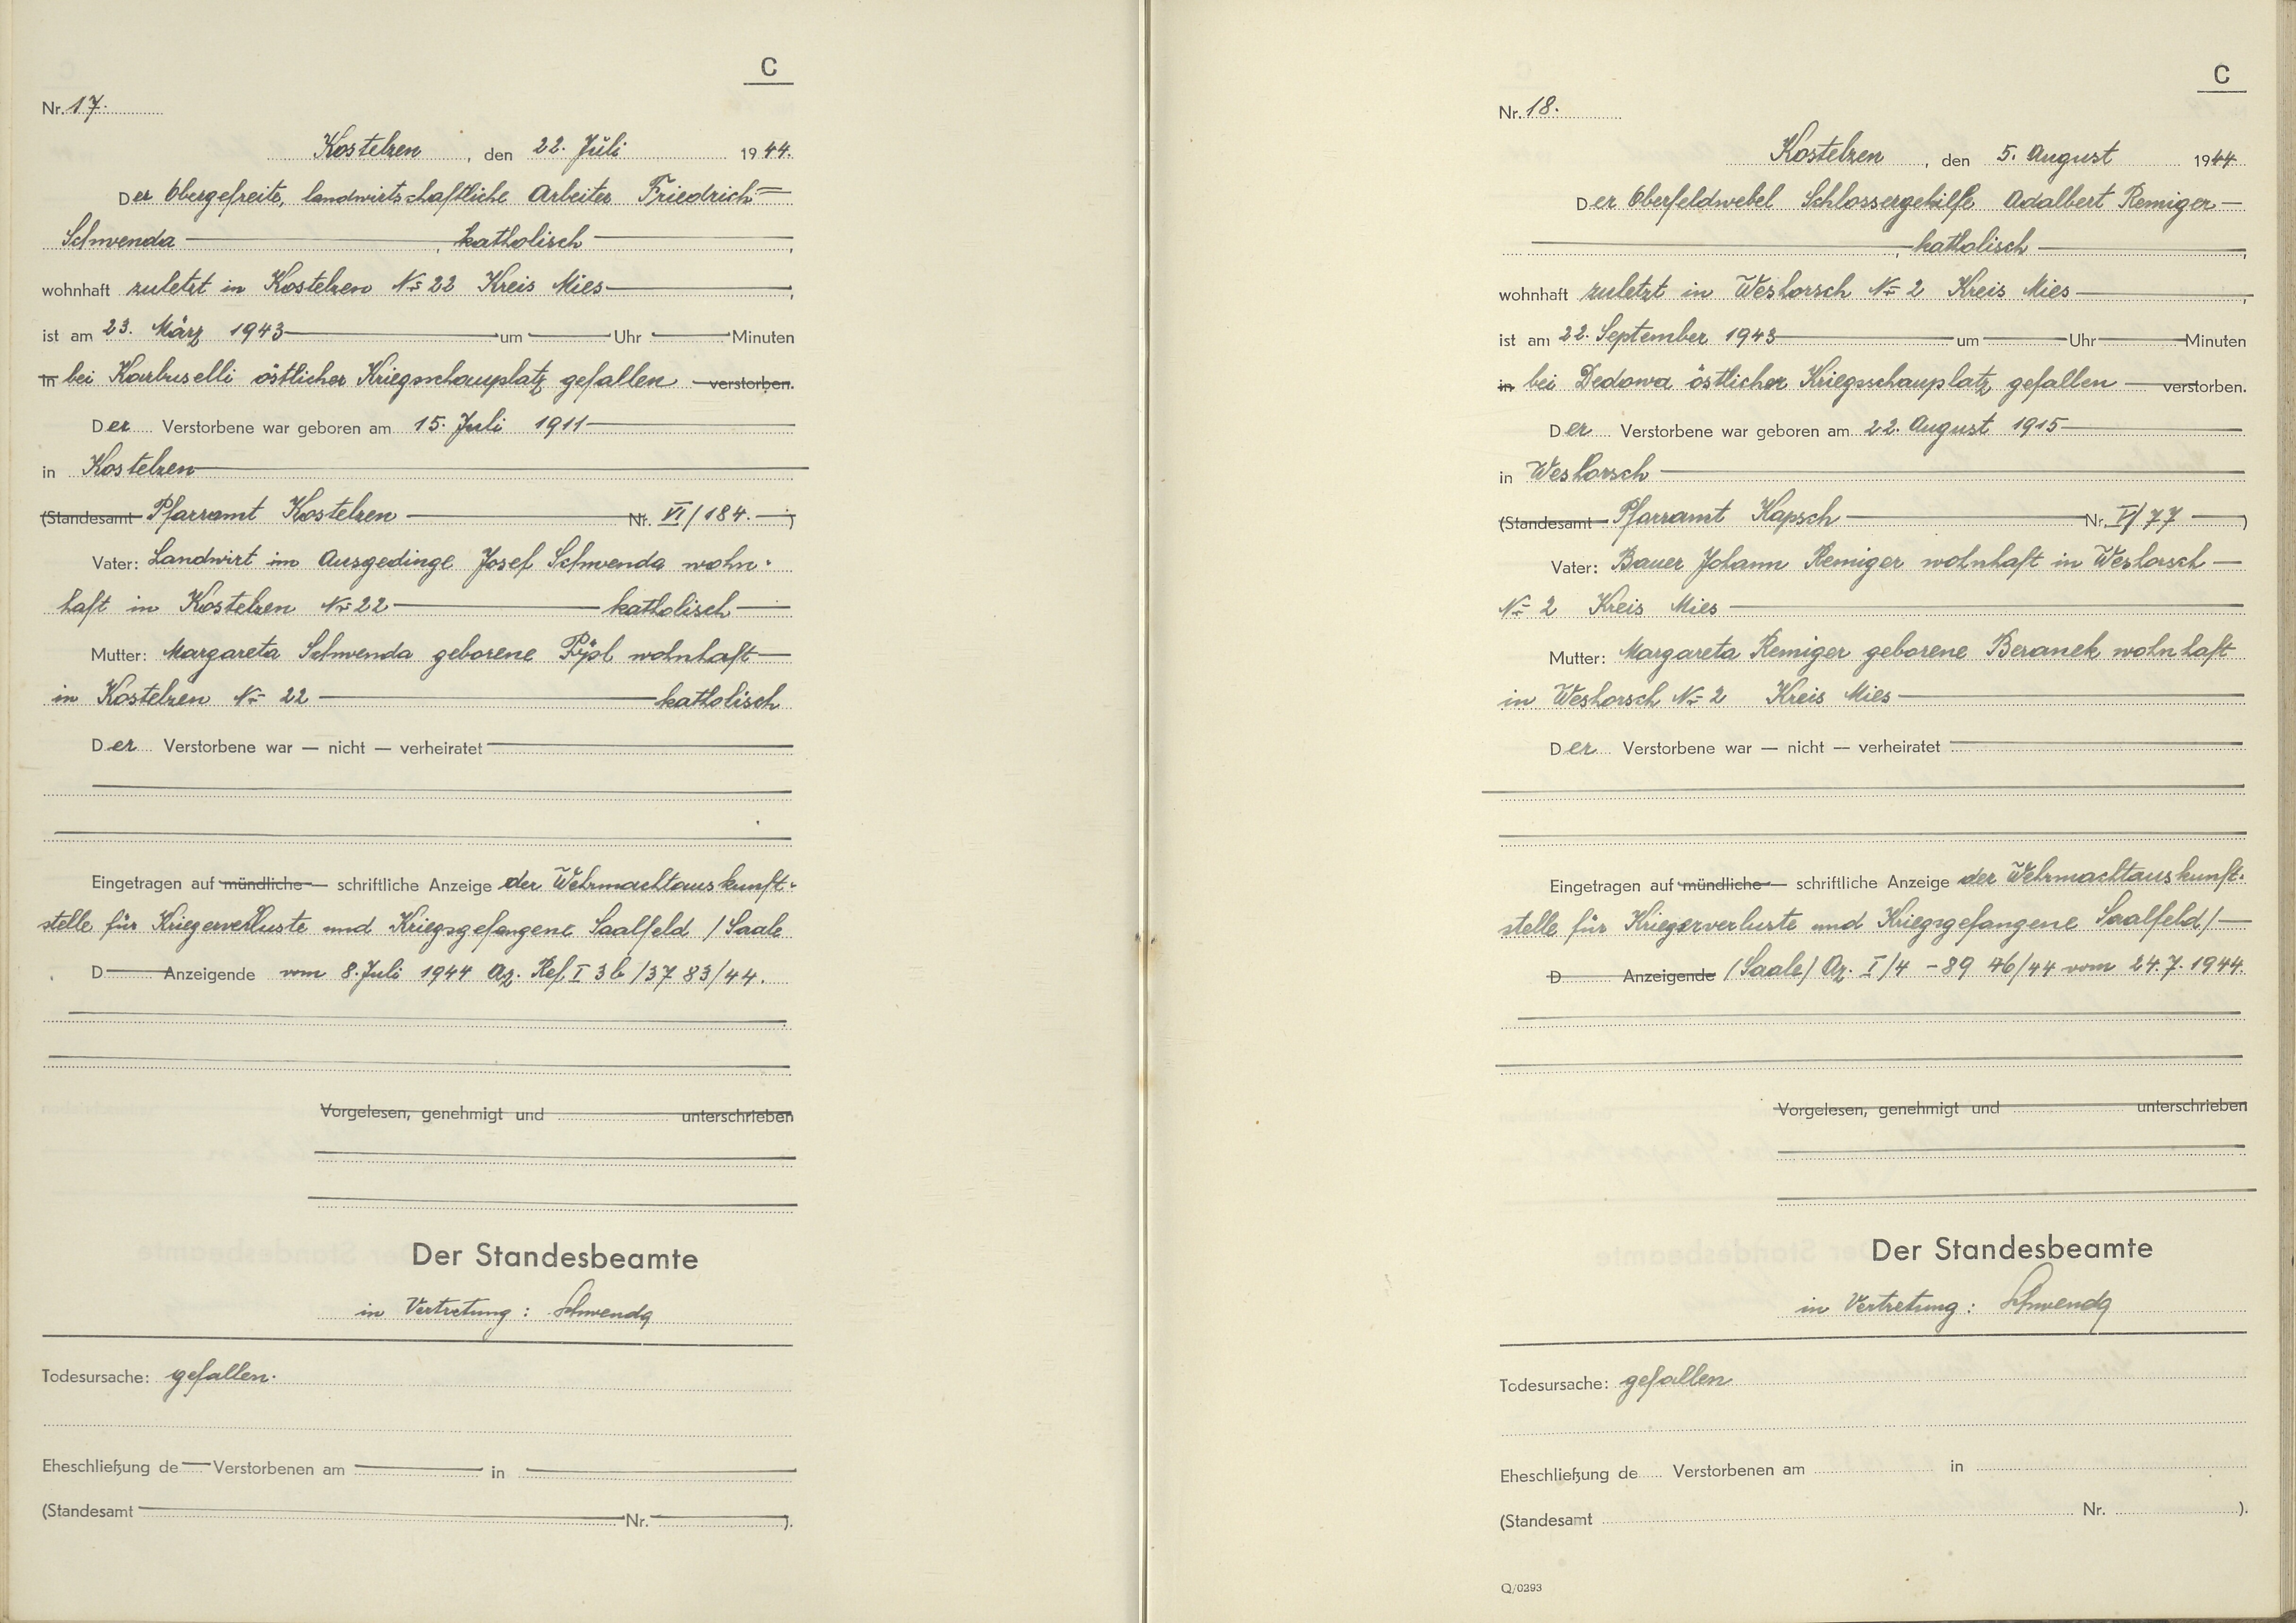 C
Nr. 17.
Kostelzen, den 22. Juli 1944.
Der Obergefreite, landwirtschaftliche Arbeiter Friedrich=
Schwenda, katholisch,
wohnhaft zuletzt in Kostelzen No 22 Kreis Mies,
ist am 23. März 1943 um Uhr Minuten
in bei Karbuselli östlicher Kriegsschauplatz gefallen verstorben.
Der Verstorbene war geboren am 15. Juli 1911
in Kostelzen
(Standesamt Pfarramt Kostelzen Nr. VI/184.)
Vater: Landwirt im Ausgedinge Josef Schwenda wohn-
haft in Kostelzen No 22 katholisch
Mutter: Margareta Schwenda geborene wohnhaft
in Kostelzen No 22 katholisch
Der Verstorbene war — nicht — verheiratet
Eingetragen auf mündliche — schriftliche Anzeige der Wehrmachtauskunft-
stelle für Kriegerverluste und Kriegsgefangene Saalfeld / Saale
D Anzeigende vom 8. Juli 1944 Az. Ref. I 3b /37 83/44.
Vorgelesen, genehmigt und unterschrieben
Der Standesbeamte
in Vertretung: Schwenda
Todesursache: gefallen.
Eheschließung de Verstorbenen am in
(Standesamt Nr. ).
C
Nr. 18.
Kostelzen, den 5. August 1944
Der Oberfeldwebel Schlossergehilfe Adalbert Remiger
, katholisch,
wohnhaft zuletzt in Weshorsch No 2 Kreis Mies,
ist am 22. September 1943 um Uhr Minuten
in bei Dedowa östlicher Kriegsschauplatz gefallen verstorben.
Der Verstorbene war geboren am 22. August 1915
in Weshorsch
(Standesamt Pfarramt Kapsch Nr. V/77 )
Vater: Bauer Johann Remiger wohnhaft in Weshorsch
No 2 Kreis Mies
Mutter: Margareta Remiger geborene Beranek wohnhaft
in Weshorsch No 2 Kreis Mies
Der Verstorbene war — nicht — verheiratet
Eingetragen auf mündliche — schriftliche Anzeige der Wehrmachtauskunft-
stelle für Kriegerverluste und Kriegsgefangene Saalfeld/
D Anzeigende (Saale) Az. I/4 - 89 46/44 vom 24.7.1944.
Vorgelesen, genehmigt und unterschrieben
Der Standesbeamte
in Vertretung: Schwenda
Todesursache: gefallen
Eheschließung de Verstorbenen am in
(Standesamt Nr. ).
Q/0293